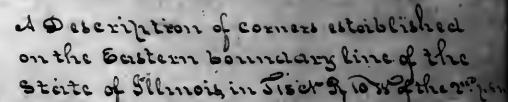 A Description of corners established
on the Eastern boundary line of the
State of Illinois, in T15N R10W of the 2nd P.M